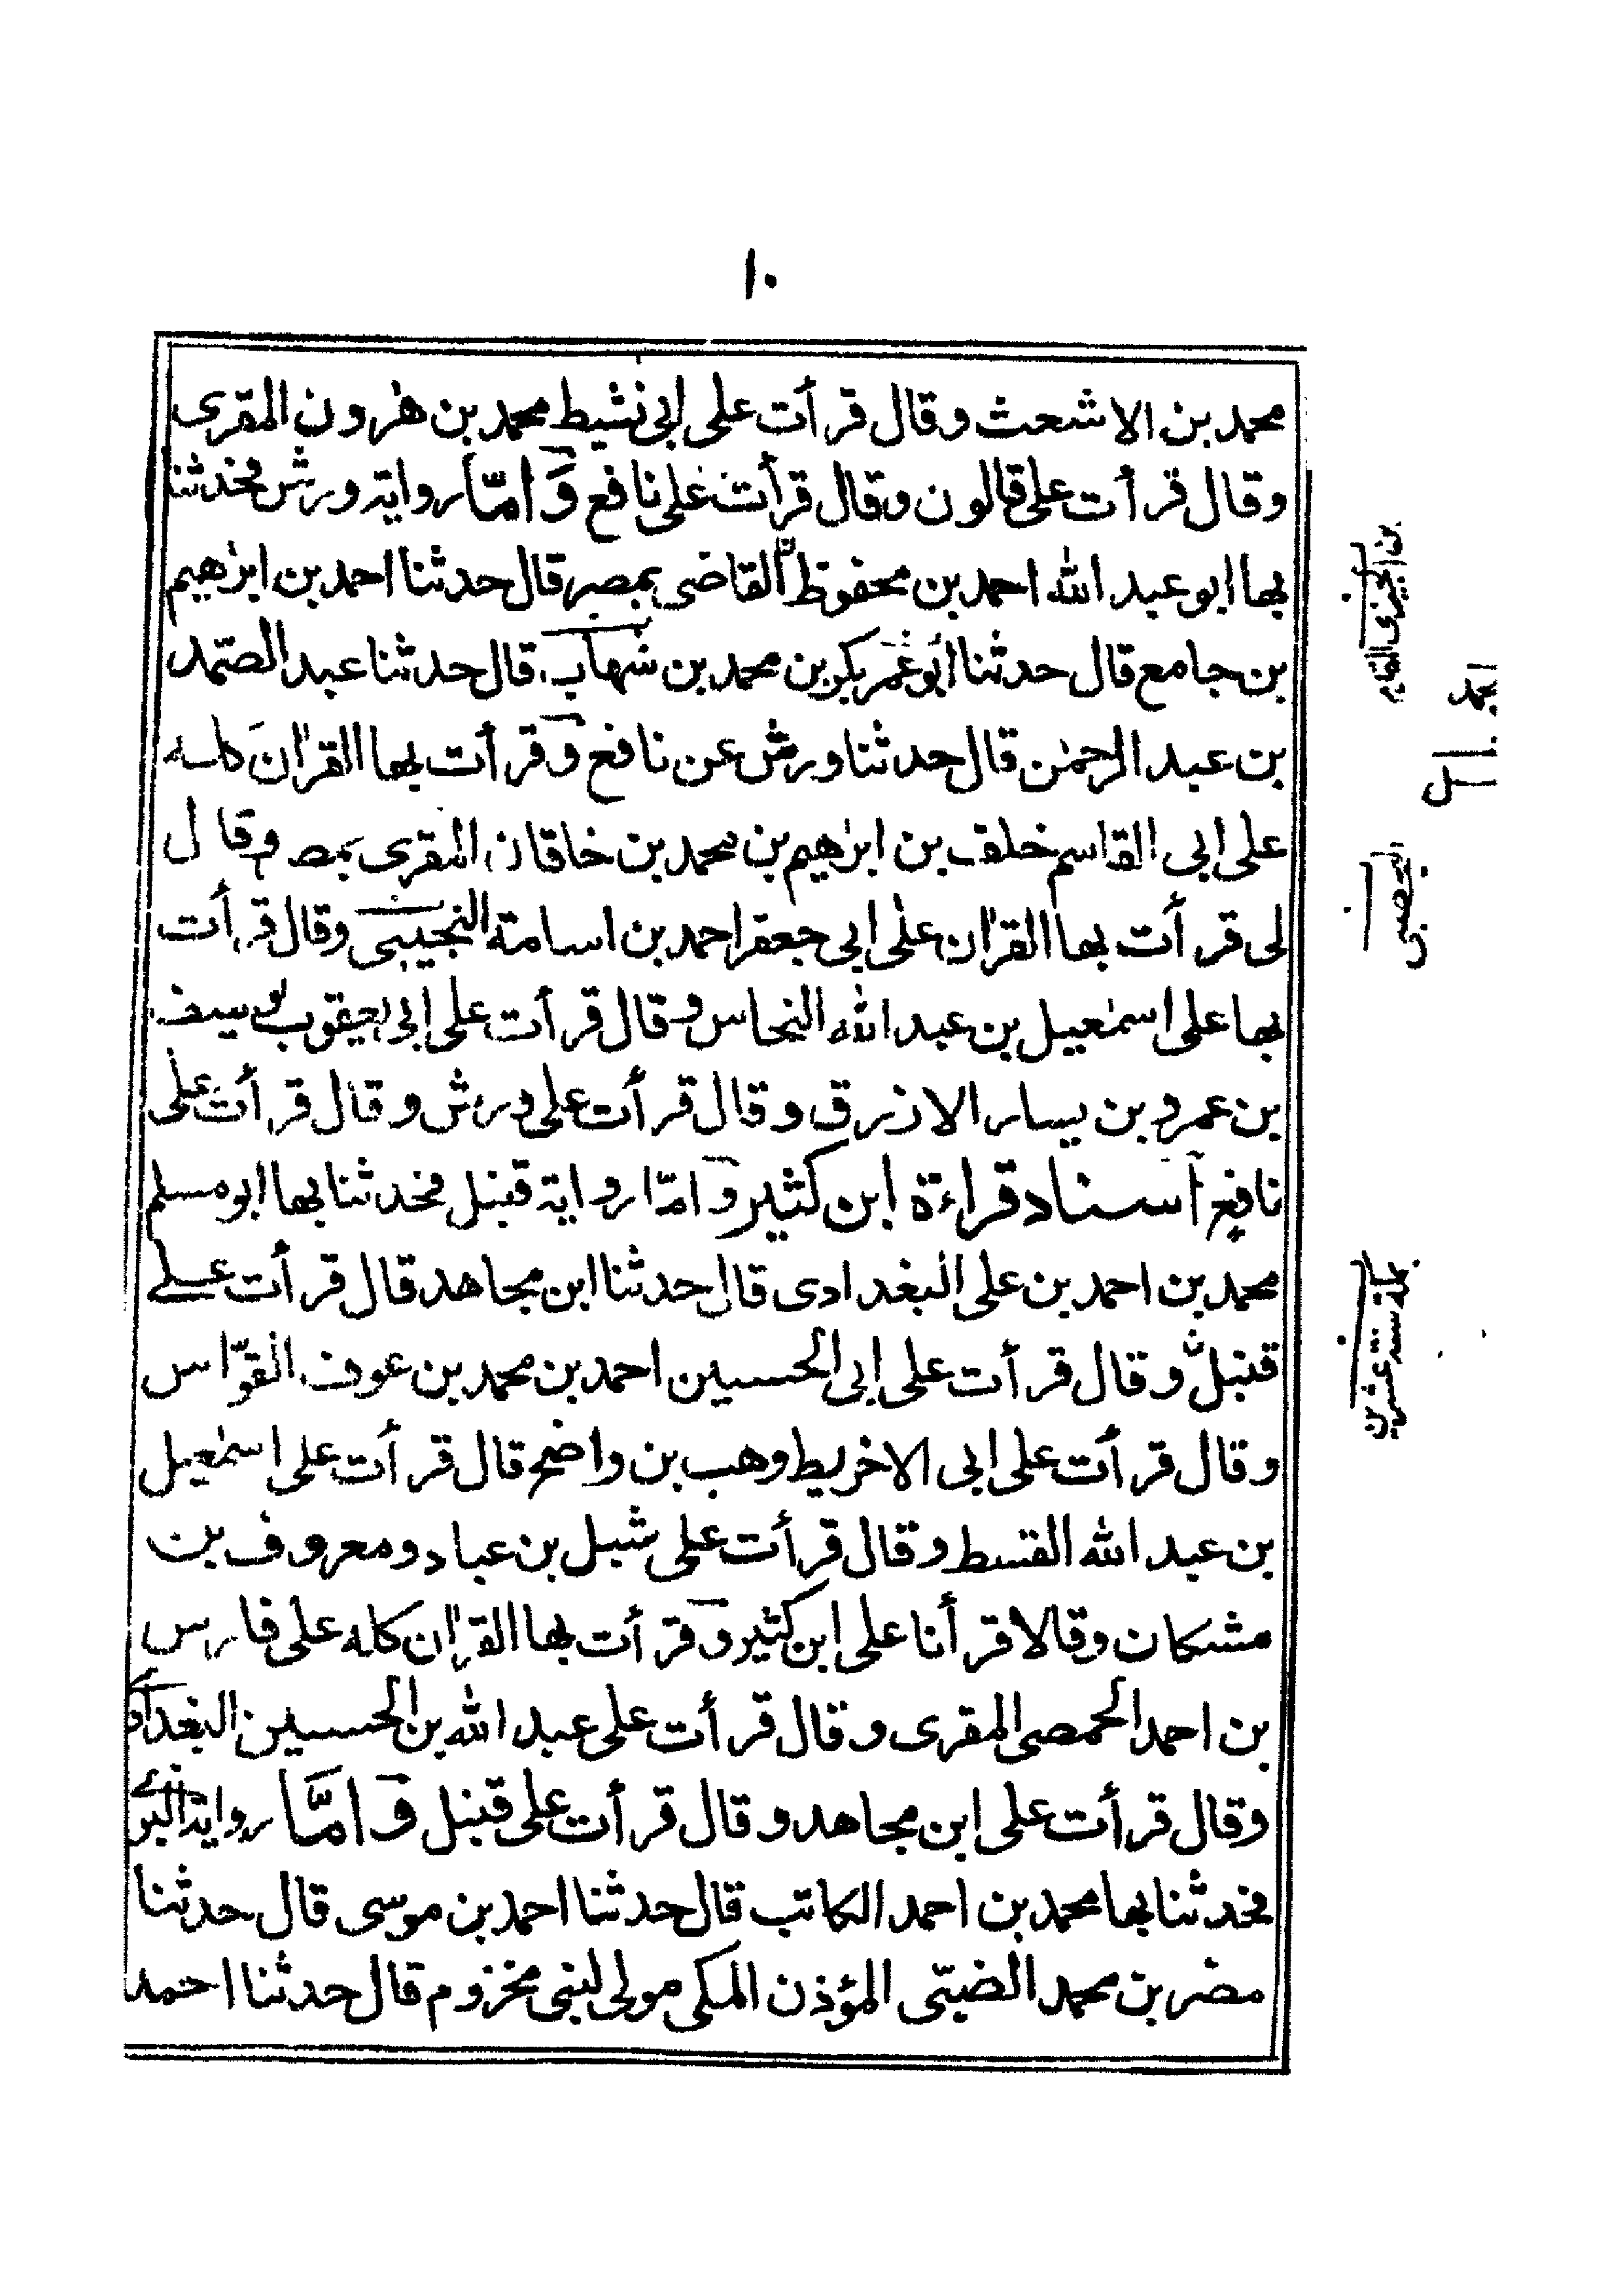 ١٠
محمد بن الاشعث وقال قرأت على ابى نشيط محمد بن هٰرون المقرى
وقال قرأت على قالون وقال قرأت على نافع وَامّا رواية ورش فحدثنا
بها ابو عبد الله احمد بن محفوظ القاضى بمصر قال حدثنا احمد بن ابرٰهيم
بن جامع قال حدثنا ابو عمر بكر بن محمد بن شهاب قال حدثنا عبد الصّمد
بن عبد الرحمٰن قال حدثنا ورش عن نافع وقرأت بها القراٰن كله
على ابى القاسم خلف بن ابرٰهيم بن محمد بن خاقان المقرى بمصر وقال
لى قرأت بها القراٰن على ابى جعفر احمد بن اسامة النجيبى وقال قرأت
بها على اسمٰعيل بن عبد الله النحاس وقال قرأت على ابى يعقوب يوسف
بن عمرو بن يسار الازرق وقال قرأت على ورش وقال قرأت على
نافع اسناد قراءة ابن كثير وامّا رواية قنبل فحدثنا بها ابو مسلم
محمد بن احمد بن على البغدادى قال حدثنا ابن مجاهد قال قرأت على
قنبل وقال قرأت على ابى الحسين احمد بن محمد بن عوف القوّاس
وقال قرأت على ابى الاخريط وهب بن واضح قال قرأت على اسمٰعيل
بن عبد الله القسط وقال قرأت على شبل بن عباد ومعروف بن
مشكان وقالا قرأنا على ابن كثير وقرأت بها القراٰن كله على فارس
بن احمد الحمصى المقرى وقال قرأت على عبد الله بن الحسين البغدادى
وقال قرأت على ابن مجاهد وقال قرأت على قنبل وَامَّا رواية البزى
فحدثنا بها محمد بن احمد الكاتب قال حدثنا احمد بن موسى قال حدثنا
مضر بن محمد الضبّى المؤذن المكى مولى لبنى مخزوم قال حدثنا احمد